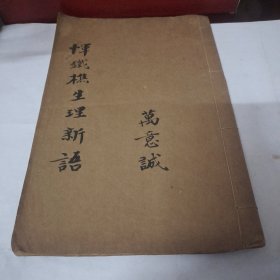 惲鐵樵生理新語
萬意誠